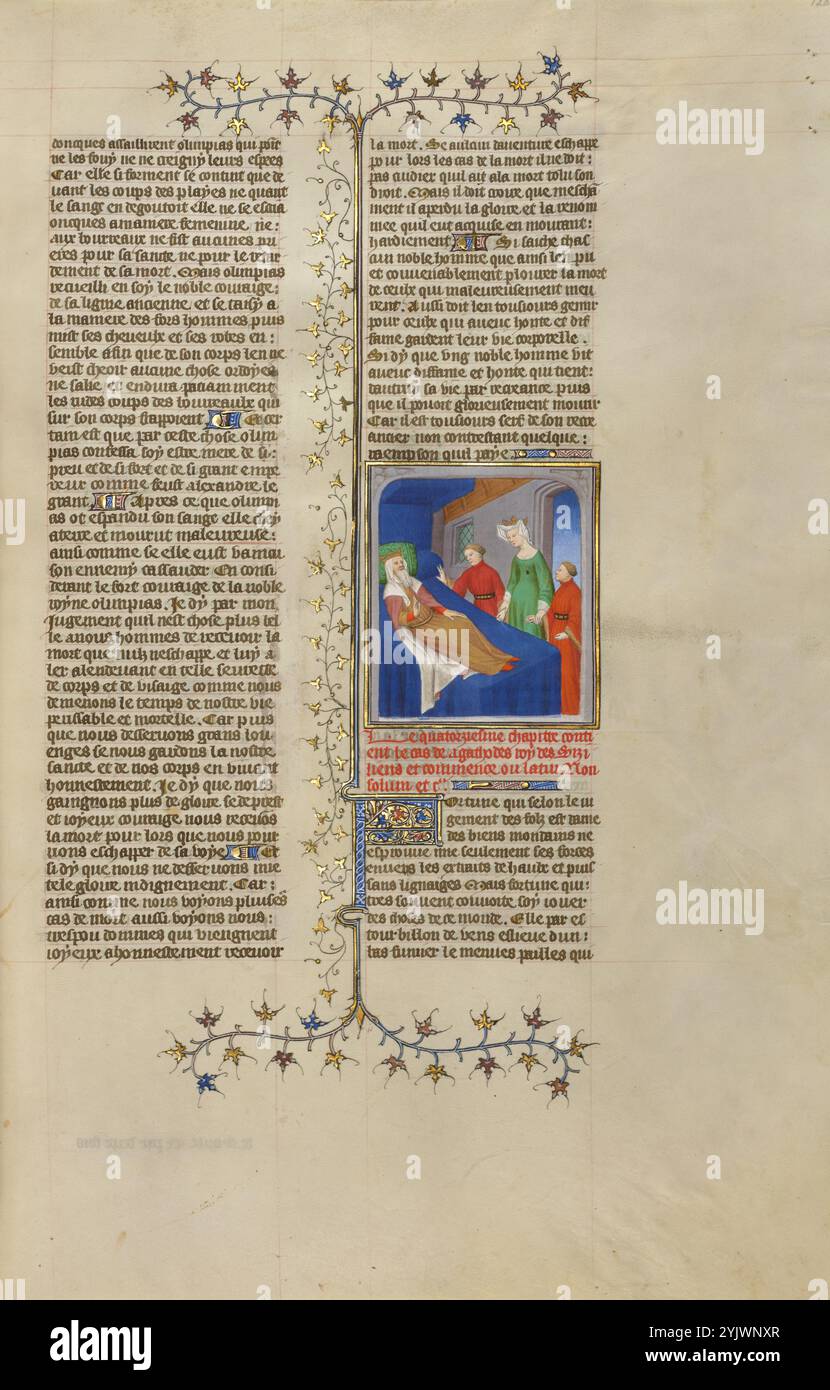 doncques assaillirent olimpias qui point
ne les fouy ne ne creigny leurs espees
Car elle si forment se contint que de
uant les coups des playes ne quant
le sang en degoutoit elle ne se escria
oncques a maniere femenine ne
aux bourreaux ne fist aucunes pri
eres pour sa sante ne pour le retar
dement de sa mort. Mais olimpias
recueilli en soy le noble couraige
de sa ligniee ancienne et se taisy a
la maniere des fors hommes puis
mist ses cheueulx et ses robes en
semble afin que de son corps len ne
veist cheoir aucune chose ordoyee
ne salie et endura paciamment
les rudes coups des bourreaulx qui
sur son corps frappoient Et cer
tain est que par ceste chose olim
pias confessa soy estre mere de si
preu et de si fort et de si grant empe
reur comme feust alexandre le
grant Apres ce que olimpi
as ot espandu son sang elle chey
aterre et mourut maleureuse
ainsi comme se elle eust vaincu
son ennemy cassander En consi
derant le fort couraige de la noble
royne olimpias. Je dy par mon
Jugement quil nest chose plus bel
le a nous hommes de receuoir la
mort que nulz neschappe et luy a
ler alendeuant en telle seurte
de corps et de visaige comme nous
demenons le temps de nostre vie
perissable et mortelle. Car puis
que nous desseruons grans lou
enges se nous gardons la nostre
sante et de nos corps en viuant
honnestement. Je dy que nous
gaingnons plus de gloire se de prest
et ioyeux couraige nous receuons
la mort pour lors que nous pour
rions eschapper de sa voye Et
si dy que nous ne desseruons mie
tele gloire indignement. Car
ainsi comme nous voyons pluiseurs
cas de mort aussi voyons nous
trespou dommes qui vieignent
ioyeux a honnestement receuoir
la mort. Se aulcun dauenture eschappe
pour lors les cas de la mort il ne doit
pas cuidier quil ait ala mort tolu son
droit. Mais il doit croire que mescha
ment il a perdu la gloire et la renom
mee quil eut acquise en mourant
hardiement Si saiche chas
cun noble homme que ainsi len pu
et conuenablement plourer la mort
de ceulx qui maleureusement meu
rent. Aussi doit len tousiours gemir
pour ceulx qui auecc honte et dif
fame gardent leur vie corporelle.
Si dy que vng noble homme vit
auecc diffame et honte qui tient
dautrui sa vie par recreance puis
que il pouoit glorieusement mourir
Car il est tousiours serf de son recre
ancier non contrestant quelque
raempson quil paye
Le quatorziesme chapitre conti
ent le cas de Agathodes roy des Sizi
liens et commence ou latin Non
solum et cetera
Fortune qui selon le iu
gement des folz est dame
des biens mondains ne
esprouue mie seulement ses forces
enuers les extraits de hault et puis
sans lignaiges Mais fortune qui
tres souuent conuoite soy iouer
des choses de ce monde. Elle par es
tourbillon de vens eslieue dun
bas fumier le menues pailles qui
alamy
Image ID: 2YJWNXR
www.alamy.com